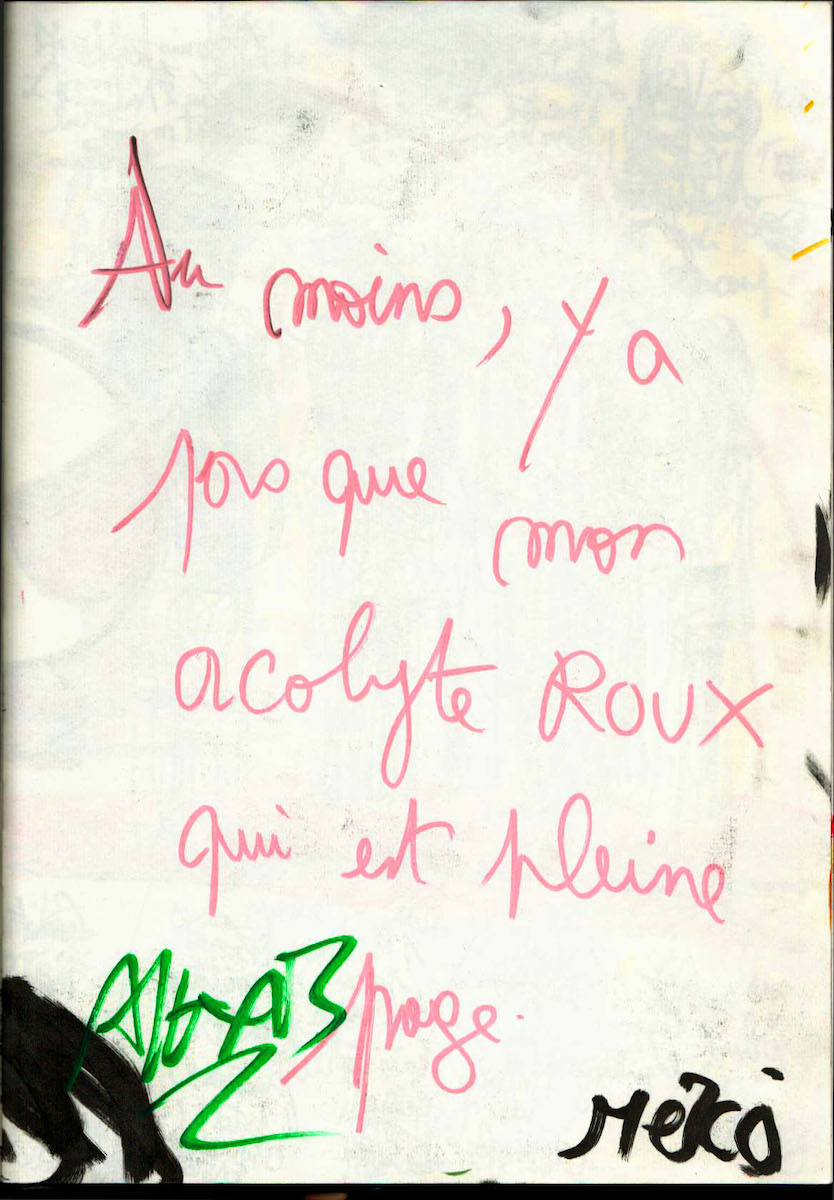 Au moins, y a
pas que mon
acolyte ROUX
qui est pleine
page.
MéKò